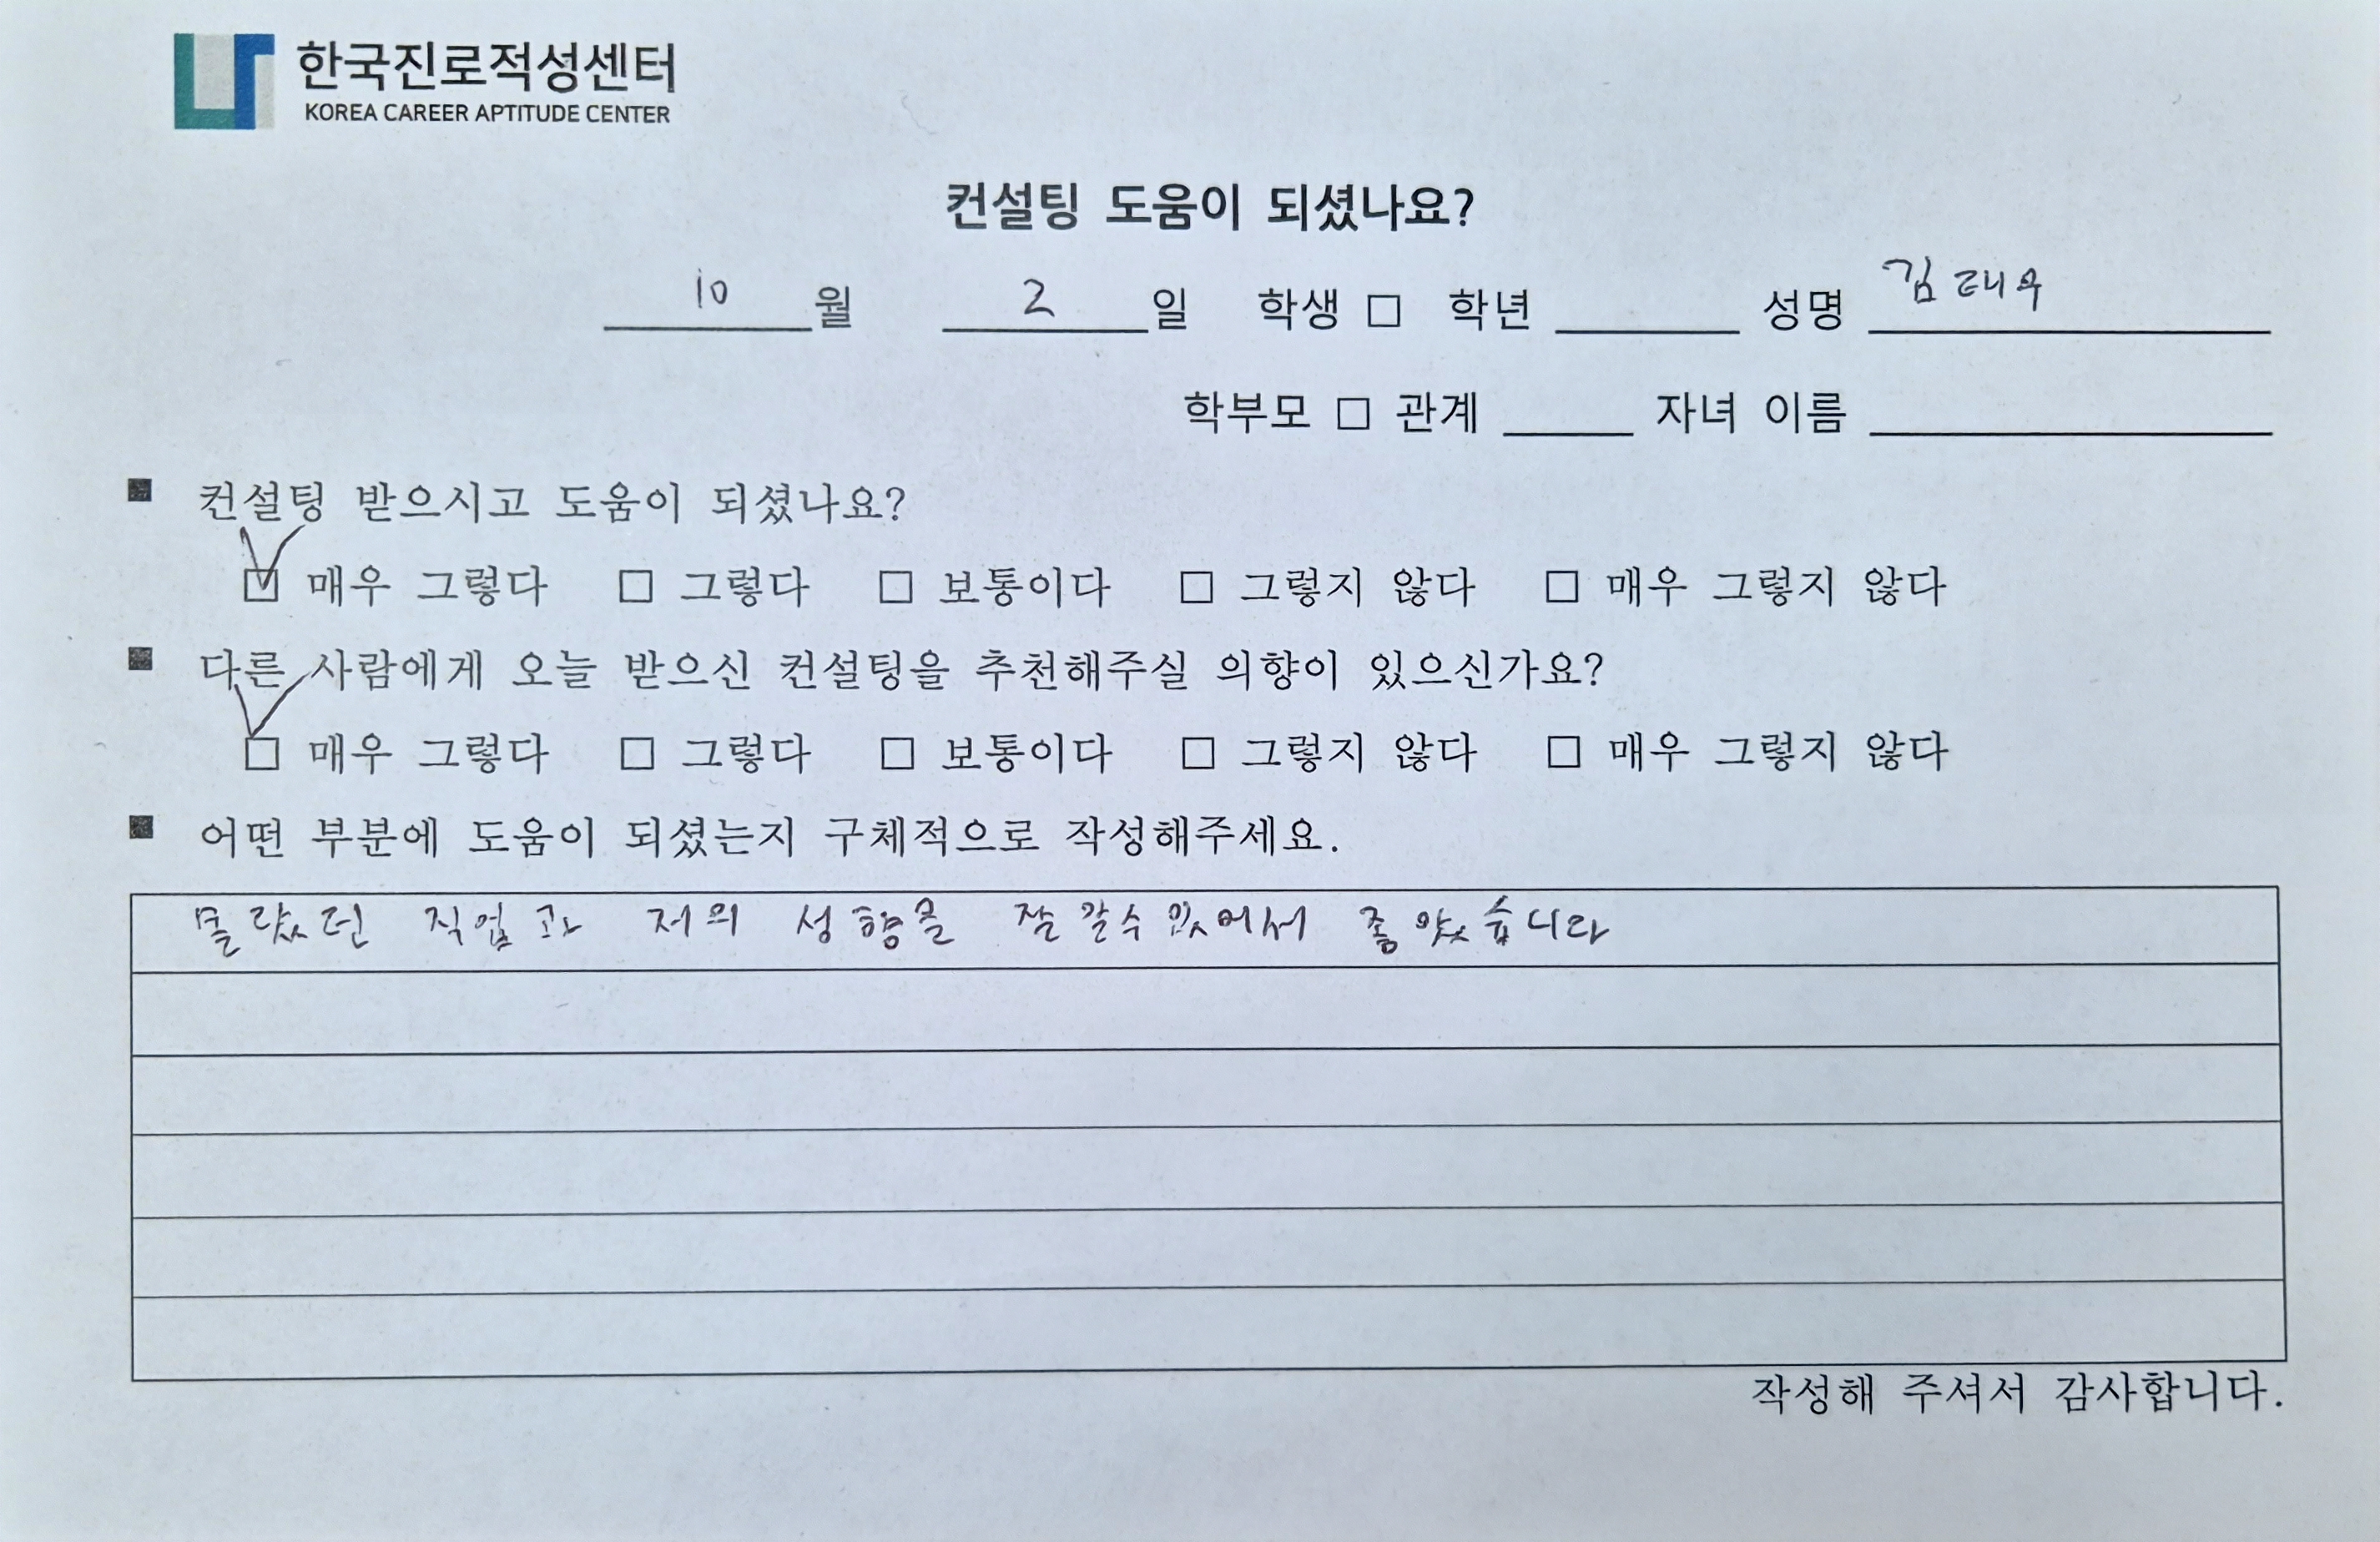 한국진로적성센터
KOREA CAREER APTITUDE CENTER
컨설팅 도움이 되셨나요?
10 월 2 일 학생 □ 학년 성명 김태우
학부모 □ 관계 자녀 이름
■ 컨설팅 받으시고 도움이 되셨나요?
☑ 매우 그렇다 □ 그렇다 □ 보통이다 □ 그렇지 않다 □ 매우 그렇지 않다
■ 다른 사람에게 오늘 받으신 컨설팅을 추천해주실 의향이 있으신가요?
☑ 매우 그렇다 □ 그렇다 □ 보통이다 □ 그렇지 않다 □ 매우 그렇지 않다
■ 어떤 부분에 도움이 되셨는지 구체적으로 작성해주세요.
몰랐던 직업과 저의 성향을 잘 알수있어서 좋았습니다
작성해 주셔서 감사합니다.